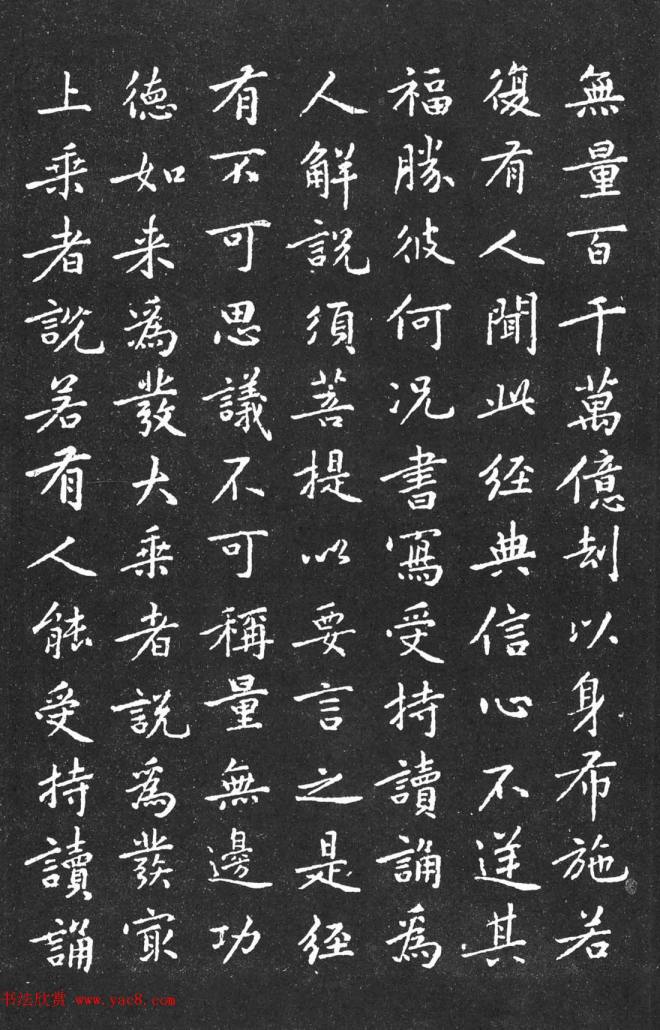 無量百千萬億劫以身布施若
復有人聞此經典信心不逆其
福勝彼何况書寫受持讀誦為
人解說須菩提以要言之是經
有不可思議不可稱量無邊功
德如来為發大乘者說為發冣
上乘者說若有人能受持讀誦
书法欣赏 www.yac8.com